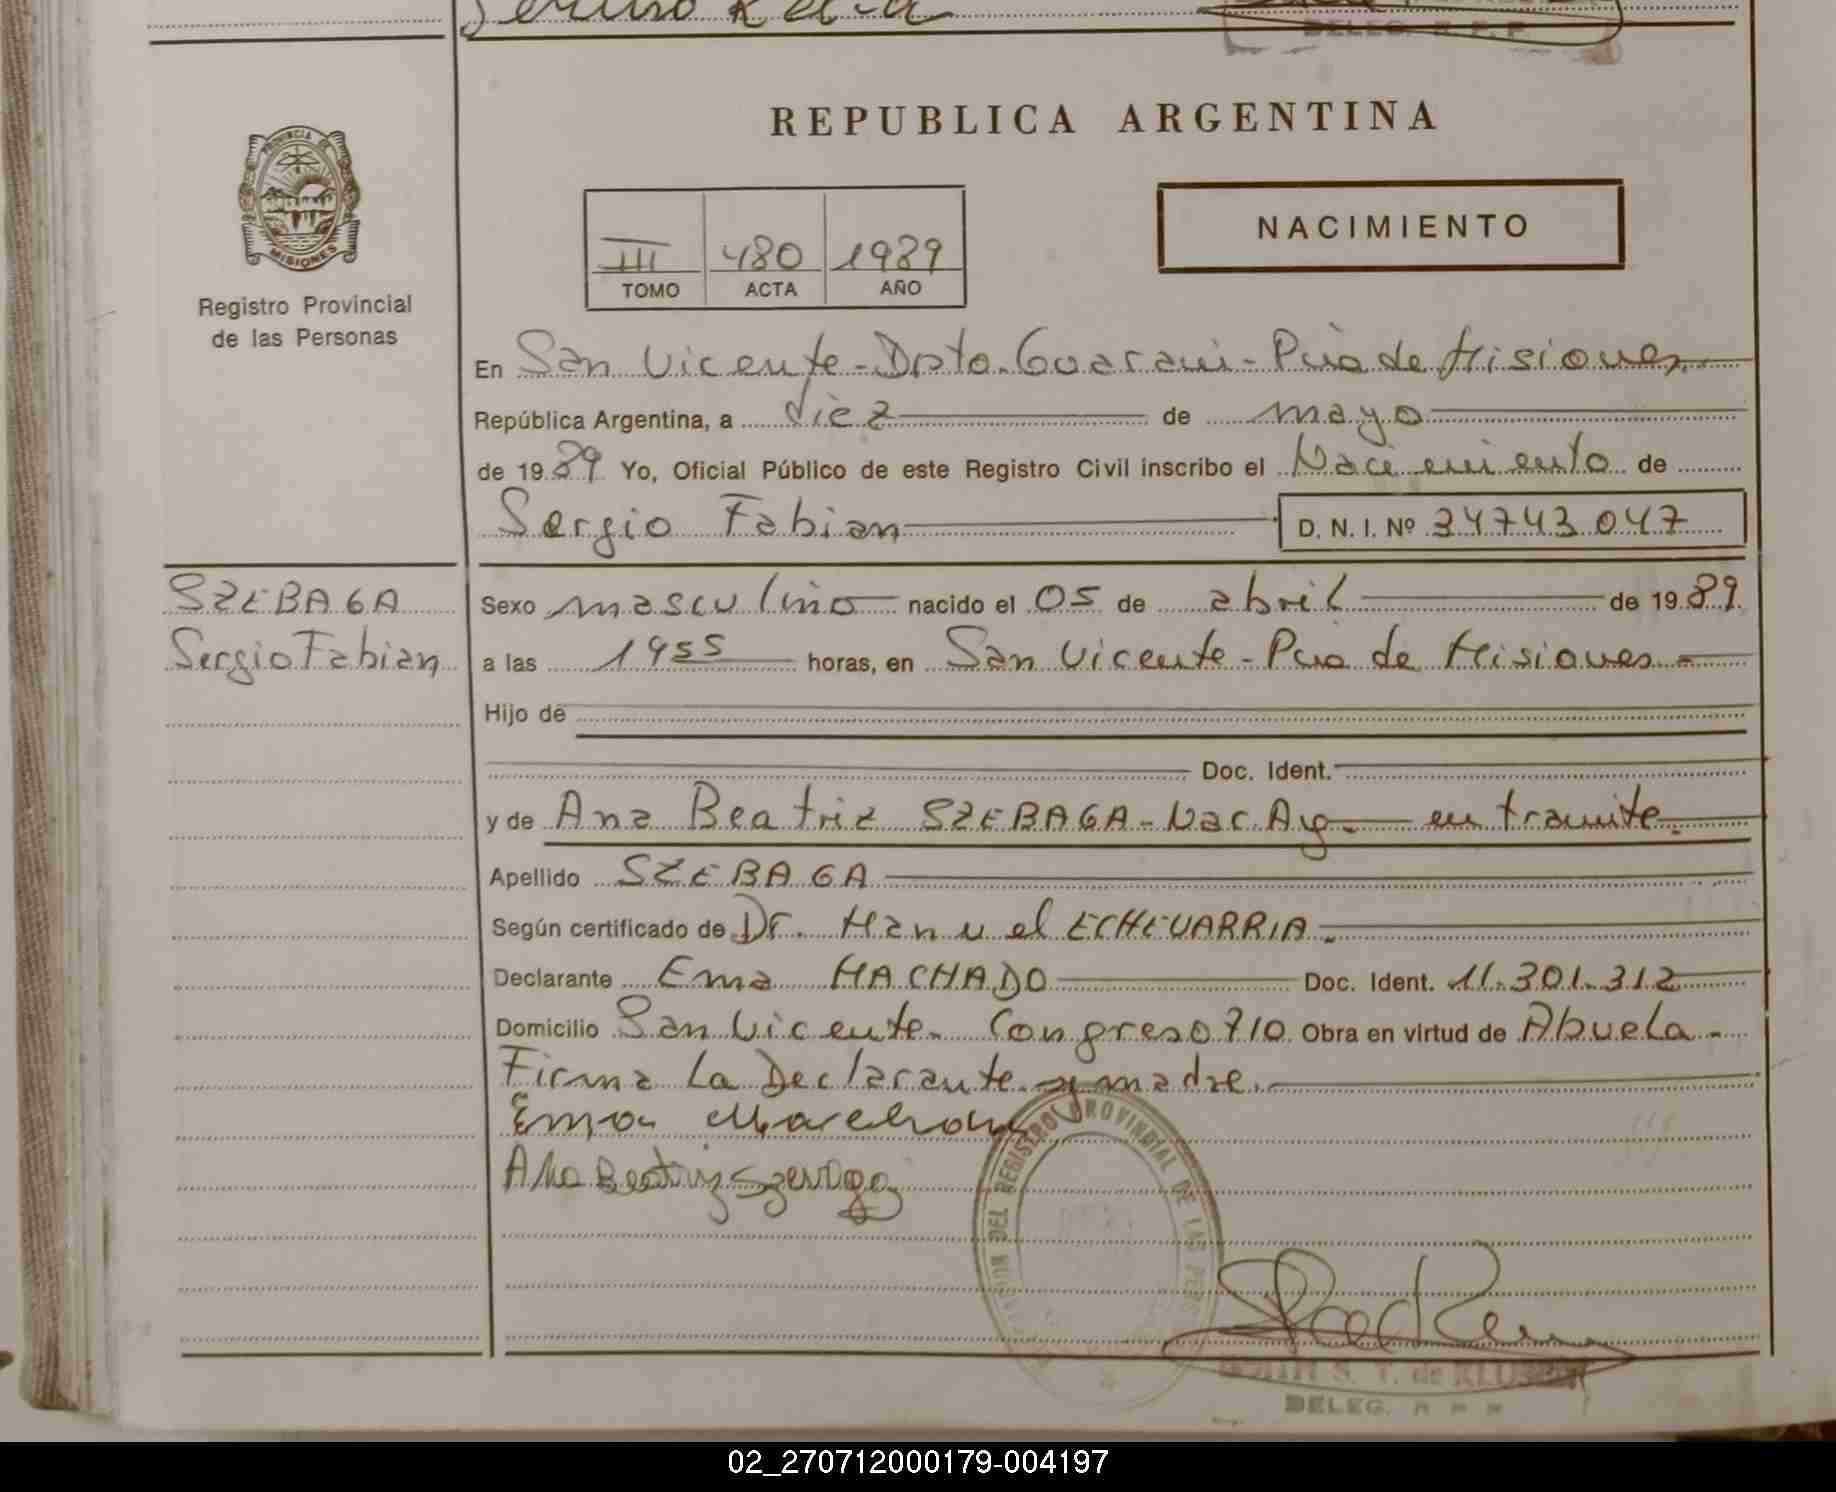 DELEG. R. P. P.
REPUBLICA ARGENTINA
PROVINCIA DE MISIONES
Registro Provincial
de las Personas
III 480 1989
TOMO ACTA AÑO
NACIMIENTO
En San Vicente - Dpto. Guarani - Pcia de Misiones
República Argentina, a diez de mayo
de 1989 Yo, Oficial Público de este Registro Civil inscribo el Nacimiento de
Sergio Fabian D. N. I. Nº 34743047
SZEBAGA
Sergio Fabian
Sexo masculino nacido el 05 de abril de 1989.
a las 1955 horas, en San Vicente - Pcia de Misiones -
Hijo de
Doc. Ident.
y de Ana Beatriz SZEBAGA - Nac. Arg. en tramite.
Apellido SZEBAGA
Según certificado de Dr. Manuel ECHEVARRIA.
Declarante Ema MACHADO Doc. Ident. 11.301.312
Domicilio San Vicente. Congreso 710 Obra en virtud de Abuela.
Firma La Declarante y madre.
Ema Machado
Ana Beatriz Szevaga
DEL REGISTRO PROVINCIAL DE LAS
S. T. de
DELEG.
02_270712000179-004197